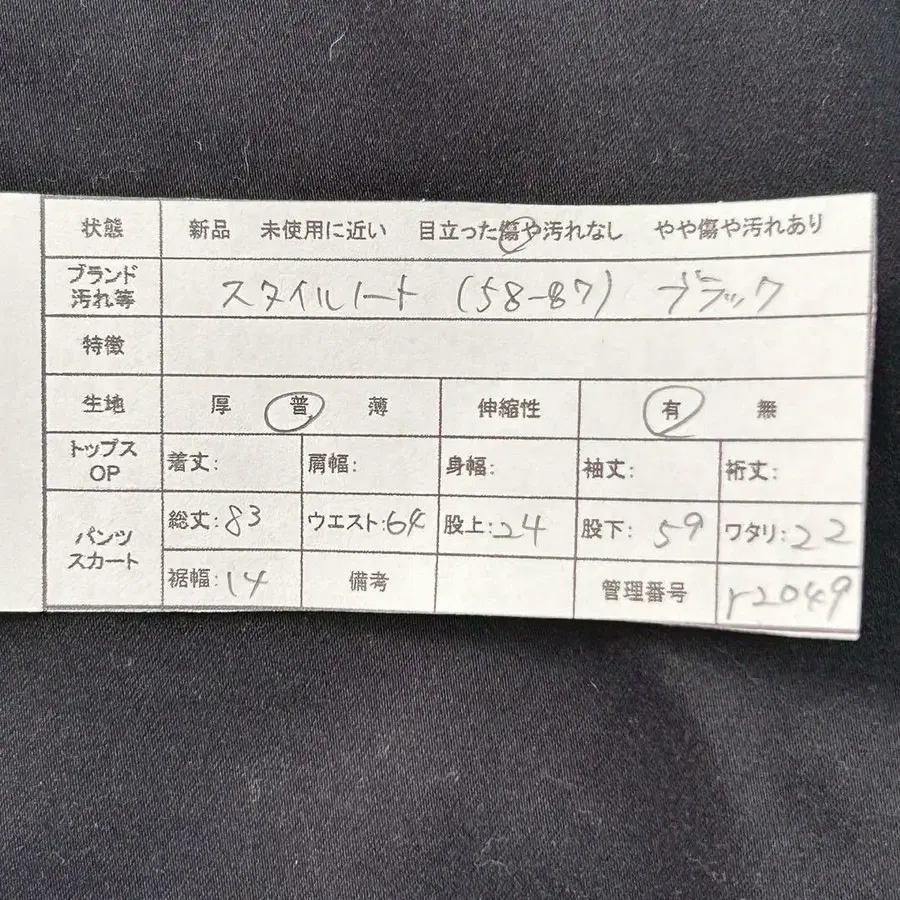 状態 新品 未使用に近い 目立った傷や汚れなし やや傷や汚れあり
ブランド
汚れ等 スタイルノート (58-87) ブラック
特徴
生地 厚 普 薄 伸縮性 有 無
トップス
OP 着丈: 肩幅: 身幅: 袖丈: 裄丈:
パンツ
スカート 総丈:83 ウエスト:64 股上:24 股下:59 ワタリ:22
裾幅:14 備考 管理番号 r2049